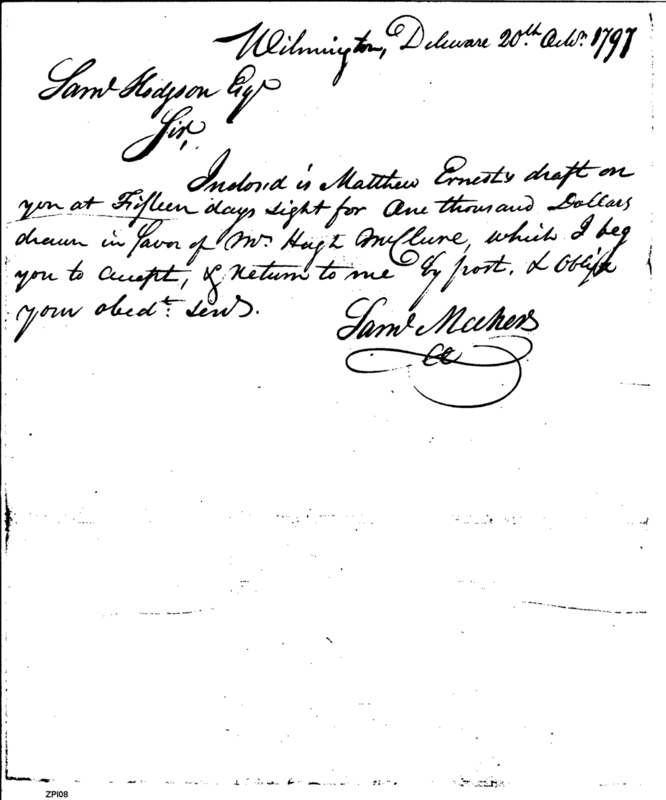 Wilmington, Deleware 20th Octbr. 1797
Saml Hodgson Esqr
Sir,
Inclos'd is Matthew Ernest's draft on
you at Fifteen days sight for One thousand Dollars
drawn in favor of Mr. Hugh McClure, which I beg
you to accept, & Return to me by post. & Oblige
your obedt. servt.
Saml Meeker
ZPI08